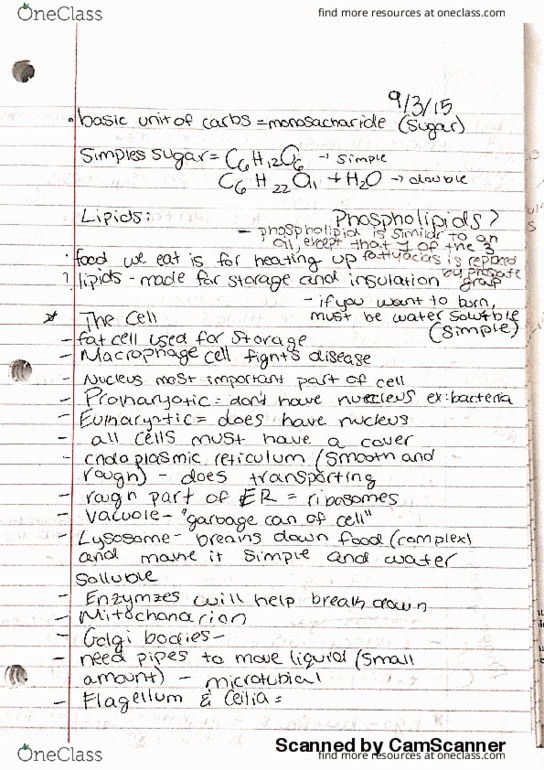 OneClass
find more resources at oneclass.com
9/3/15
• basic unit of carbs = monosacharide (sugar)
Simples sugar = C6H12O6 → simple
C6H22O11 + H2O → double
Lipids:
Phospholipids?
- phospholipid is similar to an
oil, except that 1 of the 3
fattyacids is replaced
by phosfate group
• food we eat is for heating up
lipids - made for storage and insulation
- if you want to burn,
must be water soluble
(simple)
* The Cell
- fat cell used for storage
- Macrophage cell fights disease
- Nucleus most important part of cell
- Prokaryotic = don't have nucleus ex: bacteria
- Eukaryotic = does have nucleus
- all cells must have a cover
- endoplasmic reticulum (smooth and
rough) - does transporting
- rough part of ER = ribosomes
- Vacuole - "garbage can of cell"
- Lysosome - breaks down food (complex)
and make it simple and water
solluble
- Enzymzes will help break down
- Mitochondrion
- Golgi bodies -
- need pipes to move liquid (small
amount) - microtubial
- Flagellum & Ceilia =
Scanned by CamScanner
OneClass
find more resources at oneclass.com